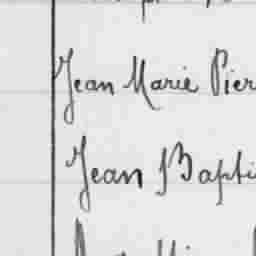 Jean Marie Pier
Jean Bapti